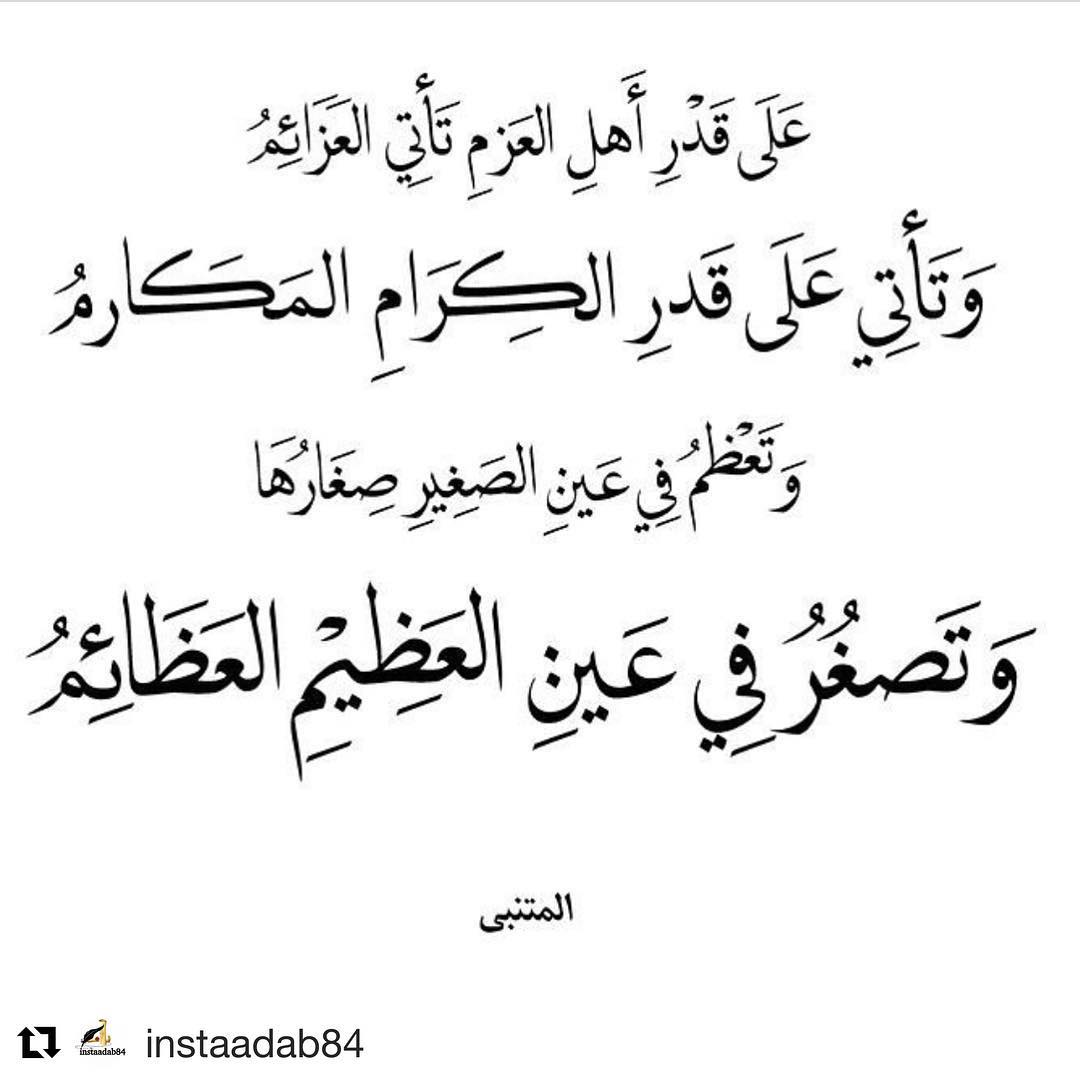 عَلَى قَدْرِ أَهلِ العَزمِ تَأتِي العَزَائِمُ
وَتَأتِي عَلَى قَدرِ الكِرَامِ المَكَارمُ
وَتَعْظمُ فِي عَينِ الصَغِيرِ صِغَارُهَا
وَتَصغُرُ فِي عَينِ العَظِيْمِ العَظَائِمُ
المتنبى
instaadab84
instaadab84